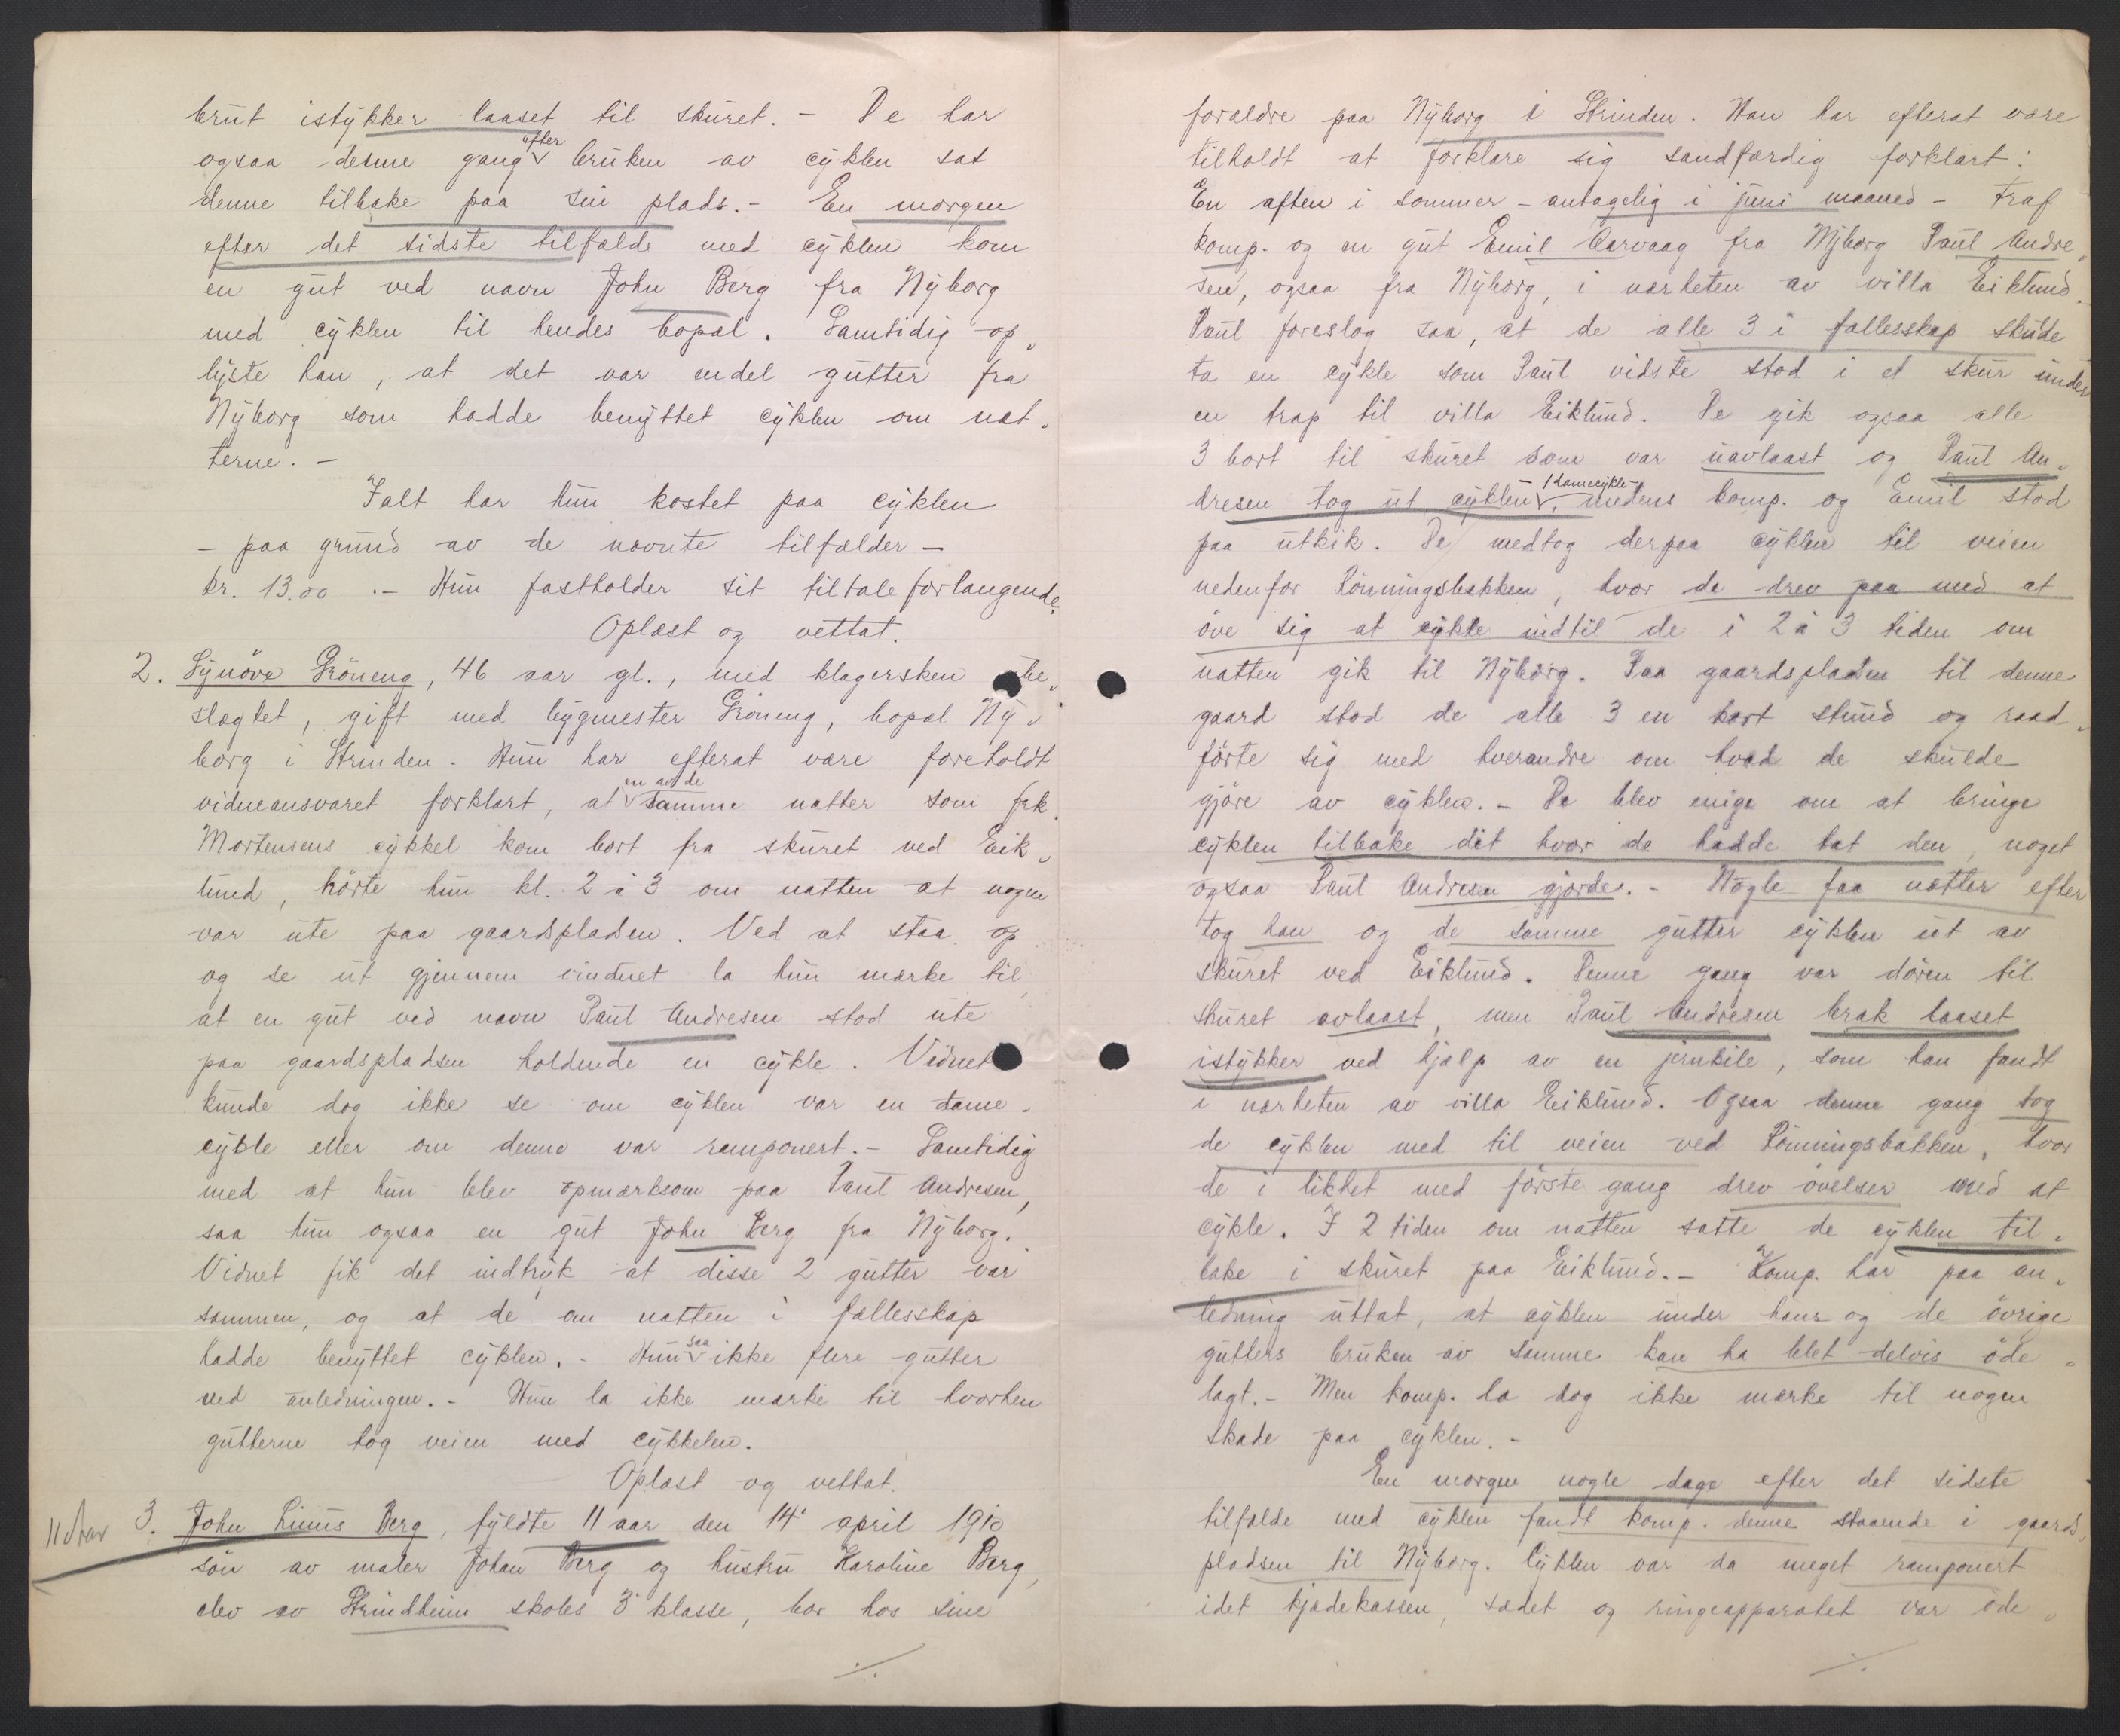 brut istykker laaset til skuret. - De har
ogsaa denne gang efter bruken av cyklen sat
denne tilbake paa sin plads. - En morgen
efter det sidste tilfælde med cyklen kom
en gut ved navn John Berg fra Nyborg
med cyklen til hendes bopæl. Samtidig op-
lyste han, at det var endel gutter fra
Nyborg som hadde benyttet cyklen om næt-
terne. -
Ialt har hun kostet paa cyklen
- paa grund av de nævnte tilfælder -
kr. 13.00. - Hun fastholder sit tiltaleforlangende.
Oplæst og vettat.
2. Synöve Gröneng, 46 aar gl., med klagersken ube-
slægtet, gift med bygmester Gröneng, bopæl Ny-
borg i Strinden. Hun har efterat være foreholdt
vidneansvaret forklart, at en av de samme nætter som frk.
Mortensens cykkel kom bort fra skuret ved Eik-
lund, hörte hun kl. 2 à 3 om natten at nogen
var ute paa gaardspladsen. Ved at staa op
og se ut gjennem vinduet la hun mærke til,
at en gut ved navn Paul Andresen stod ute
paa gaardspladsen holdende en cykle. Vidnet
kunde dog ikke se om cyklen var en dame-
cykle eller om denne var ramponert. - Samtidig
med at hun blev opmerksom paa Paul Andresen,
saa hun ogsaa en gut John Berg fra Nyborg.
Vidnet fik det indtryk at disse 2 gutter var
sammen, og at de om natten i fællesskap
hadde benyttet cyklen. - Hun saa ikke flere gutter
ved anledningen. - Hun la ikke mærke til hvorhen
gutterne tog veien med cykkelen.
Oplæst og vettat.
11 aar 3. John Linus Berg, fyldte 11 aar den 14' april 1910
sön av maler Johan Berg og hustru Karoline Berg,
elev av Strindheim skoles 3' klasse, bor hos sine
./.
forældre paa Nyborg i Strinden. Han har efterat være
tilholdt at forklare sig sandfærdig forklart:
En aften i sommer - antagelig i juni maaned - traf
komp. og en gut Emil Aarvaag fra Nyborg Paul Andre-
sen, ogsaa fra Nyborg, i nærheten av villa Eiklund.
Paul foreslog saa, at de alle 3 i fællesskap skulde
ta en cykle som Paul vidste stod i et skur under
en trap til villa Eiklund. De gik ogsaa alle
3 bort til skuret som var uavlaast og Paul An-
dresen tog ut cyklen, 1 damecykle, medens komp. og Emil stod
paa utkik. De medtog derpaa cyklen til veien
nedenfor Rönningsbakken, hvor de drev paa med at
öve sig at cykle indtil de i 2 à 3 tiden om
natten gik til Nyborg. Paa gaardspladsen til denne
gaard stod de alle 3 en kort stund og raad-
förte sig med hverandre om hvad de skulde
gjöre av cyklen. - De blev enige om at bringe
cyklen tilbake dit hvor de hadde tat den, noget
ogsaa Paul Andresen gjorde. - Nogle faa nætter efter
tog han og de samme gutter cyklen ut av
skuret ved Eiklund. Denne gang var dören til
skuret avlaast, men Paul Andresen brak laaset
istykker ved hjælp av en jernkile, som han fandt
i nærheten av villa Eiklund. Ogsaa denne gang tog
de cyklen med til veien ved Rönningsbakken, hvor
de i likhet med förste gang drev övelser med at
cykle. I 2 tiden om natten satte de cyklen til-
bake i skuret paa Eiklund. - Komp. har paa an-
ledning uttat, at cyklen under hans og de övrige
gutters bruken av samme kan ha blet delvis öde-
lagt. - Men komp. la dog ikke mærke til nogen
skade paa cyklen. -
En morgen nogle dage efter det sidste
tilfælde med cyklen fandt komp. denne staaende i gaards-
pladsen til Nyborg. Cyklen var da meget ramponert
idet kjædekassen, sædet og ringeapparatet var öde-
./.